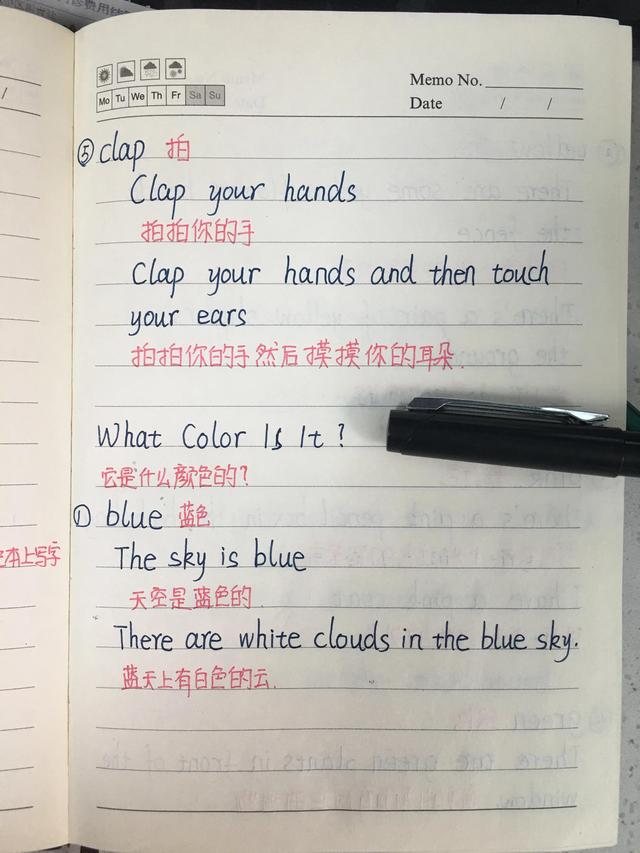 Mo Tu We Th Fr Sa Su
Memo No.
Date / /
⑤ clap 拍
Clap your hands
拍拍你的手
Clap your hands and then touch
your ears
拍拍你的手然后摸摸你的耳朵.
What Color Is It?
它是什么颜色的?
① blue 蓝色
The sky is blue
天空是蓝色的.
There are white clouds in the blue sky.
蓝天上有白色的云.
本上写字